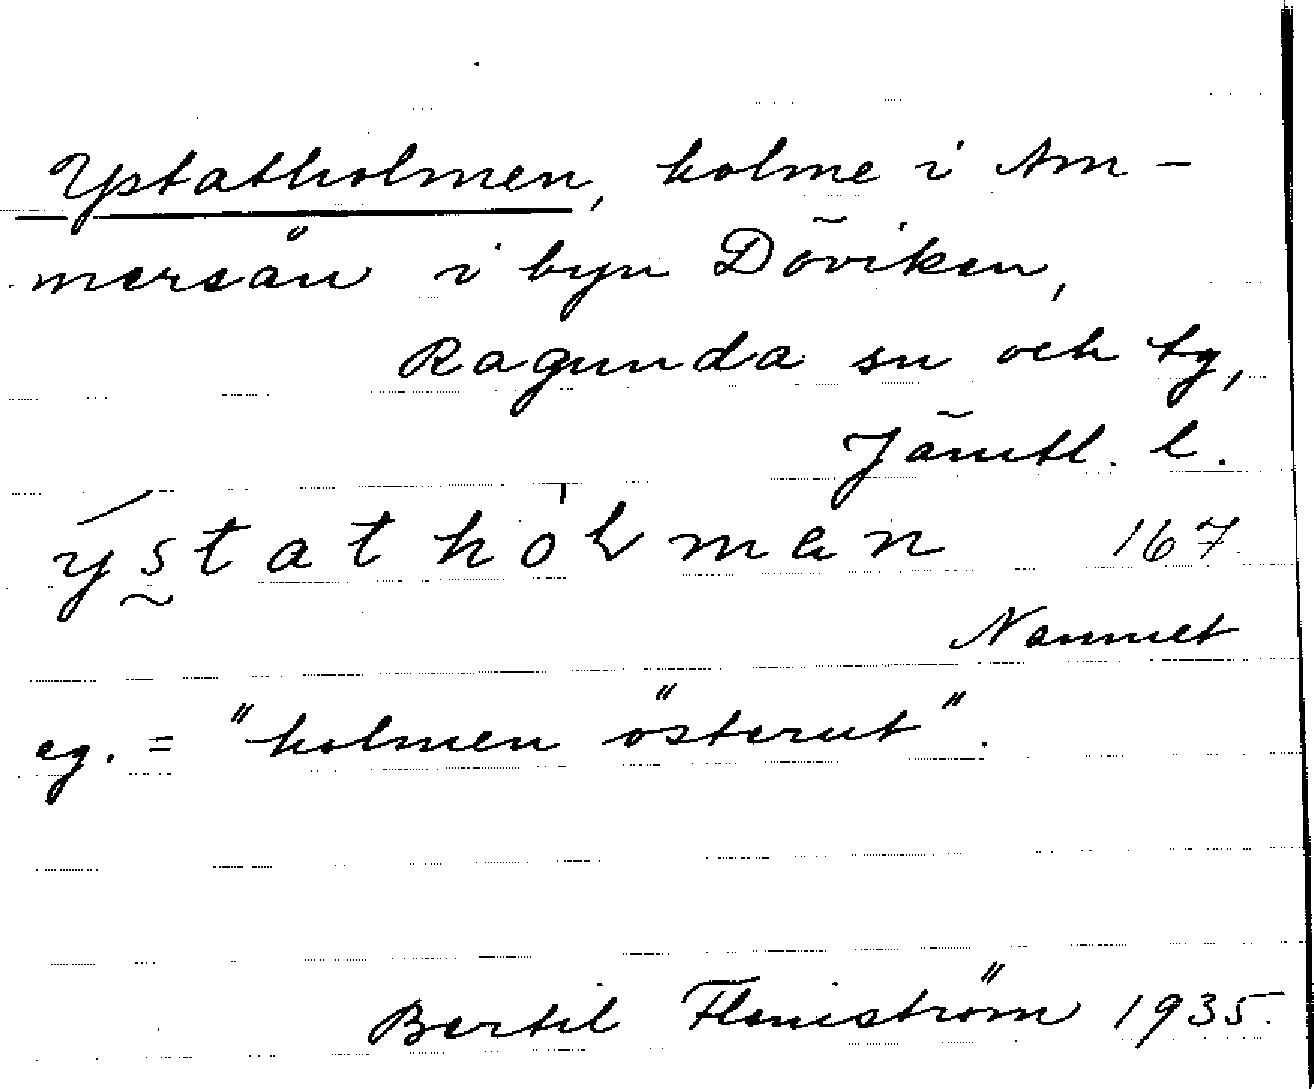 Ystatholmen, holme i Am-
mersån i byn Döviken,
Ragunda sn och tg,
Jämtl. l.
ýstathòlman 167
Namnet
eg. = "holmen österut".
Bertil Flemström 1935.